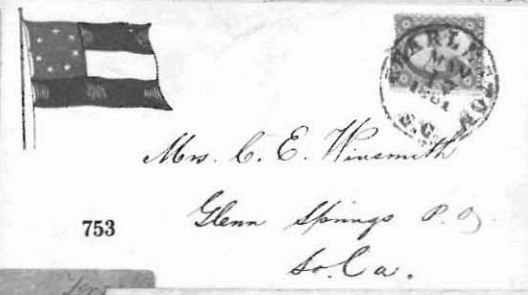 CHARLESTON
MAY
1861
S.C.
Mrs. C. E. Winsmith
Glenn Springs P. O.
So. Ca.
753